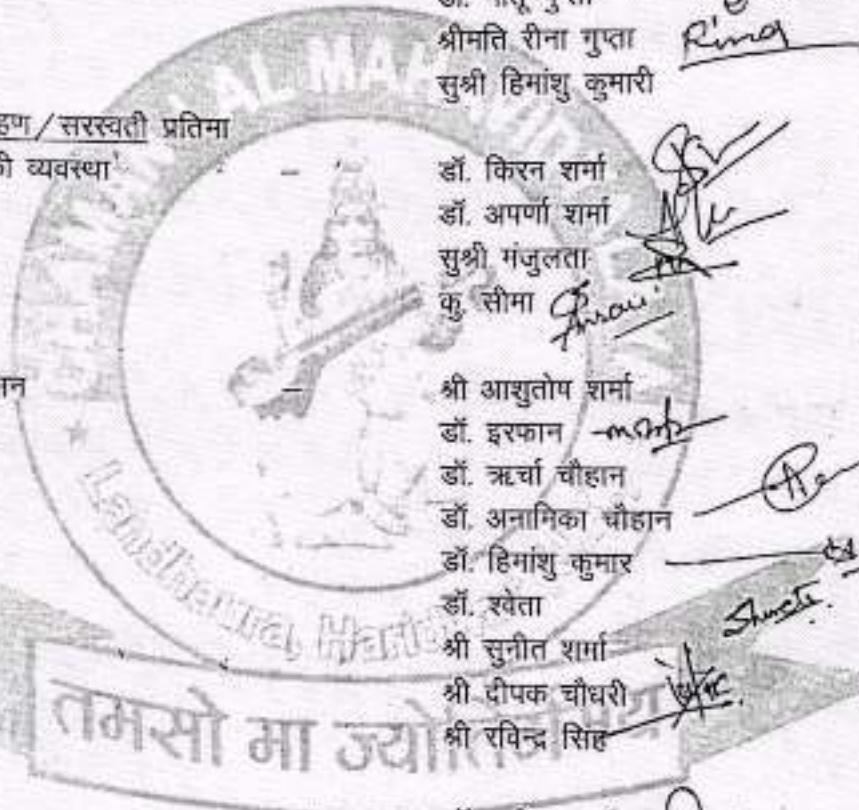 श्रीमति रीना गुप्ता Rina
सुश्री हिमांशु कुमारी
हण/सरस्वती प्रतिमा
की व्यवस्था –
डॉ. किरन शर्मा
डॉ. अपर्णा शर्मा
सुश्री मंजुलता
कु. सीमा
– श्री आशुतोष शर्मा
डॉ. इरफान
डॉ. ऋर्चा चौहान
डॉ. अनामिका चौहान
डॉ. हिमांशु कुमार
डॉ. श्वेता
श्री सुनीत शर्मा
श्री दीपक चौधरी
श्री रविन्द्र सिंह
LAL MAHA
Landhaura, Harid
तमसो मा ज्योतिर्गमय